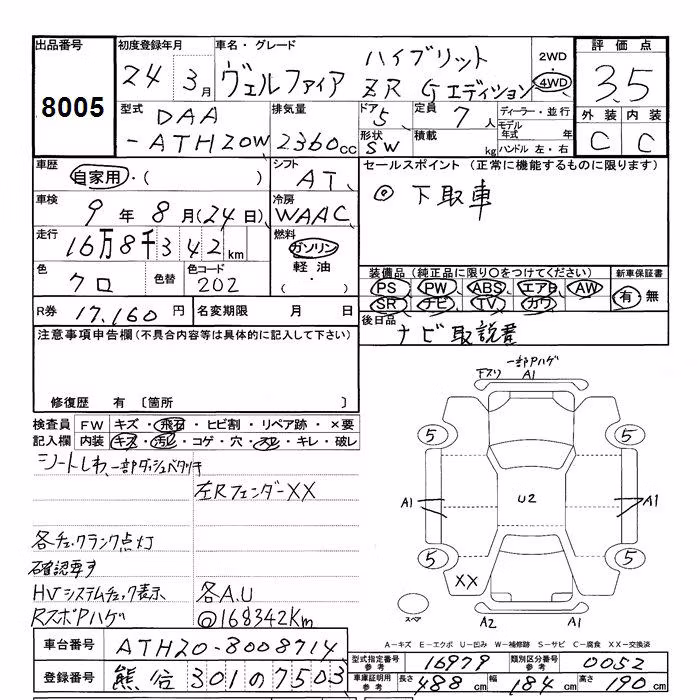 出品番号 初度登録年月 車名・グレード 評価点
8005
24 3月 ヴェルファイア
ハイブリット
ZR Gエディション
2WD
・
4WD
3.5
外装 内装
C C
型式 DAA
-ATH20W
排気量
2360cc
ドア 5 定員 7人
形状 SW 積載 kg
ディーラー・並行
モデル年式 年
ハンドル 左・右
車歴 自家用・( )
シフト
AT
セールスポイント(正常に機能するものに限ります)
◎下取車
車検 9年8月(24日)
冷房
WAAC
走行 16万8千342km
燃料
ガソリン
軽油
・
( )
色 クロ 色替 色コード 202
装備品(純正品に限り○をつけてください) 新車保証書
PS PW ABS エアB AW
SR ナビ TV カワ
有・無
R券 17,160円 名変期限 月 日
後日品
ナビ取説書
注意事項申告欄(不具合内容等は具体的に記入して下さい)
修復歴 有 〔箇所 〕
検査員
記入欄
FW キズ・飛石・ヒビ割・リペア跡・×要
内装 キズ・汚レ・コゲ・穴・・キレ・破レ
シートしわ、一部ダッシュベタツキ
左Rフェンダー××
各チェックランク点灯
確認要す
HVシステムチェック表示
RスポPハゲ
各A.U
@168342Km
一部Pハゲ
下スリ A1
5 5
A1 U2 A1
5 5
XX
スペア A2 A1
A-キズ E-エクボ U-凹み W-補修跡 S-サビ C-腐食 XX-交換済
車台番号 ATH20-8008714
登録番号 熊谷 301 の 7503
型式指定番号
参考
16979
類別区分番号
参考
0052
車庫証明用
参考
長さ 488cm 幅 184cm 高さ 190cm